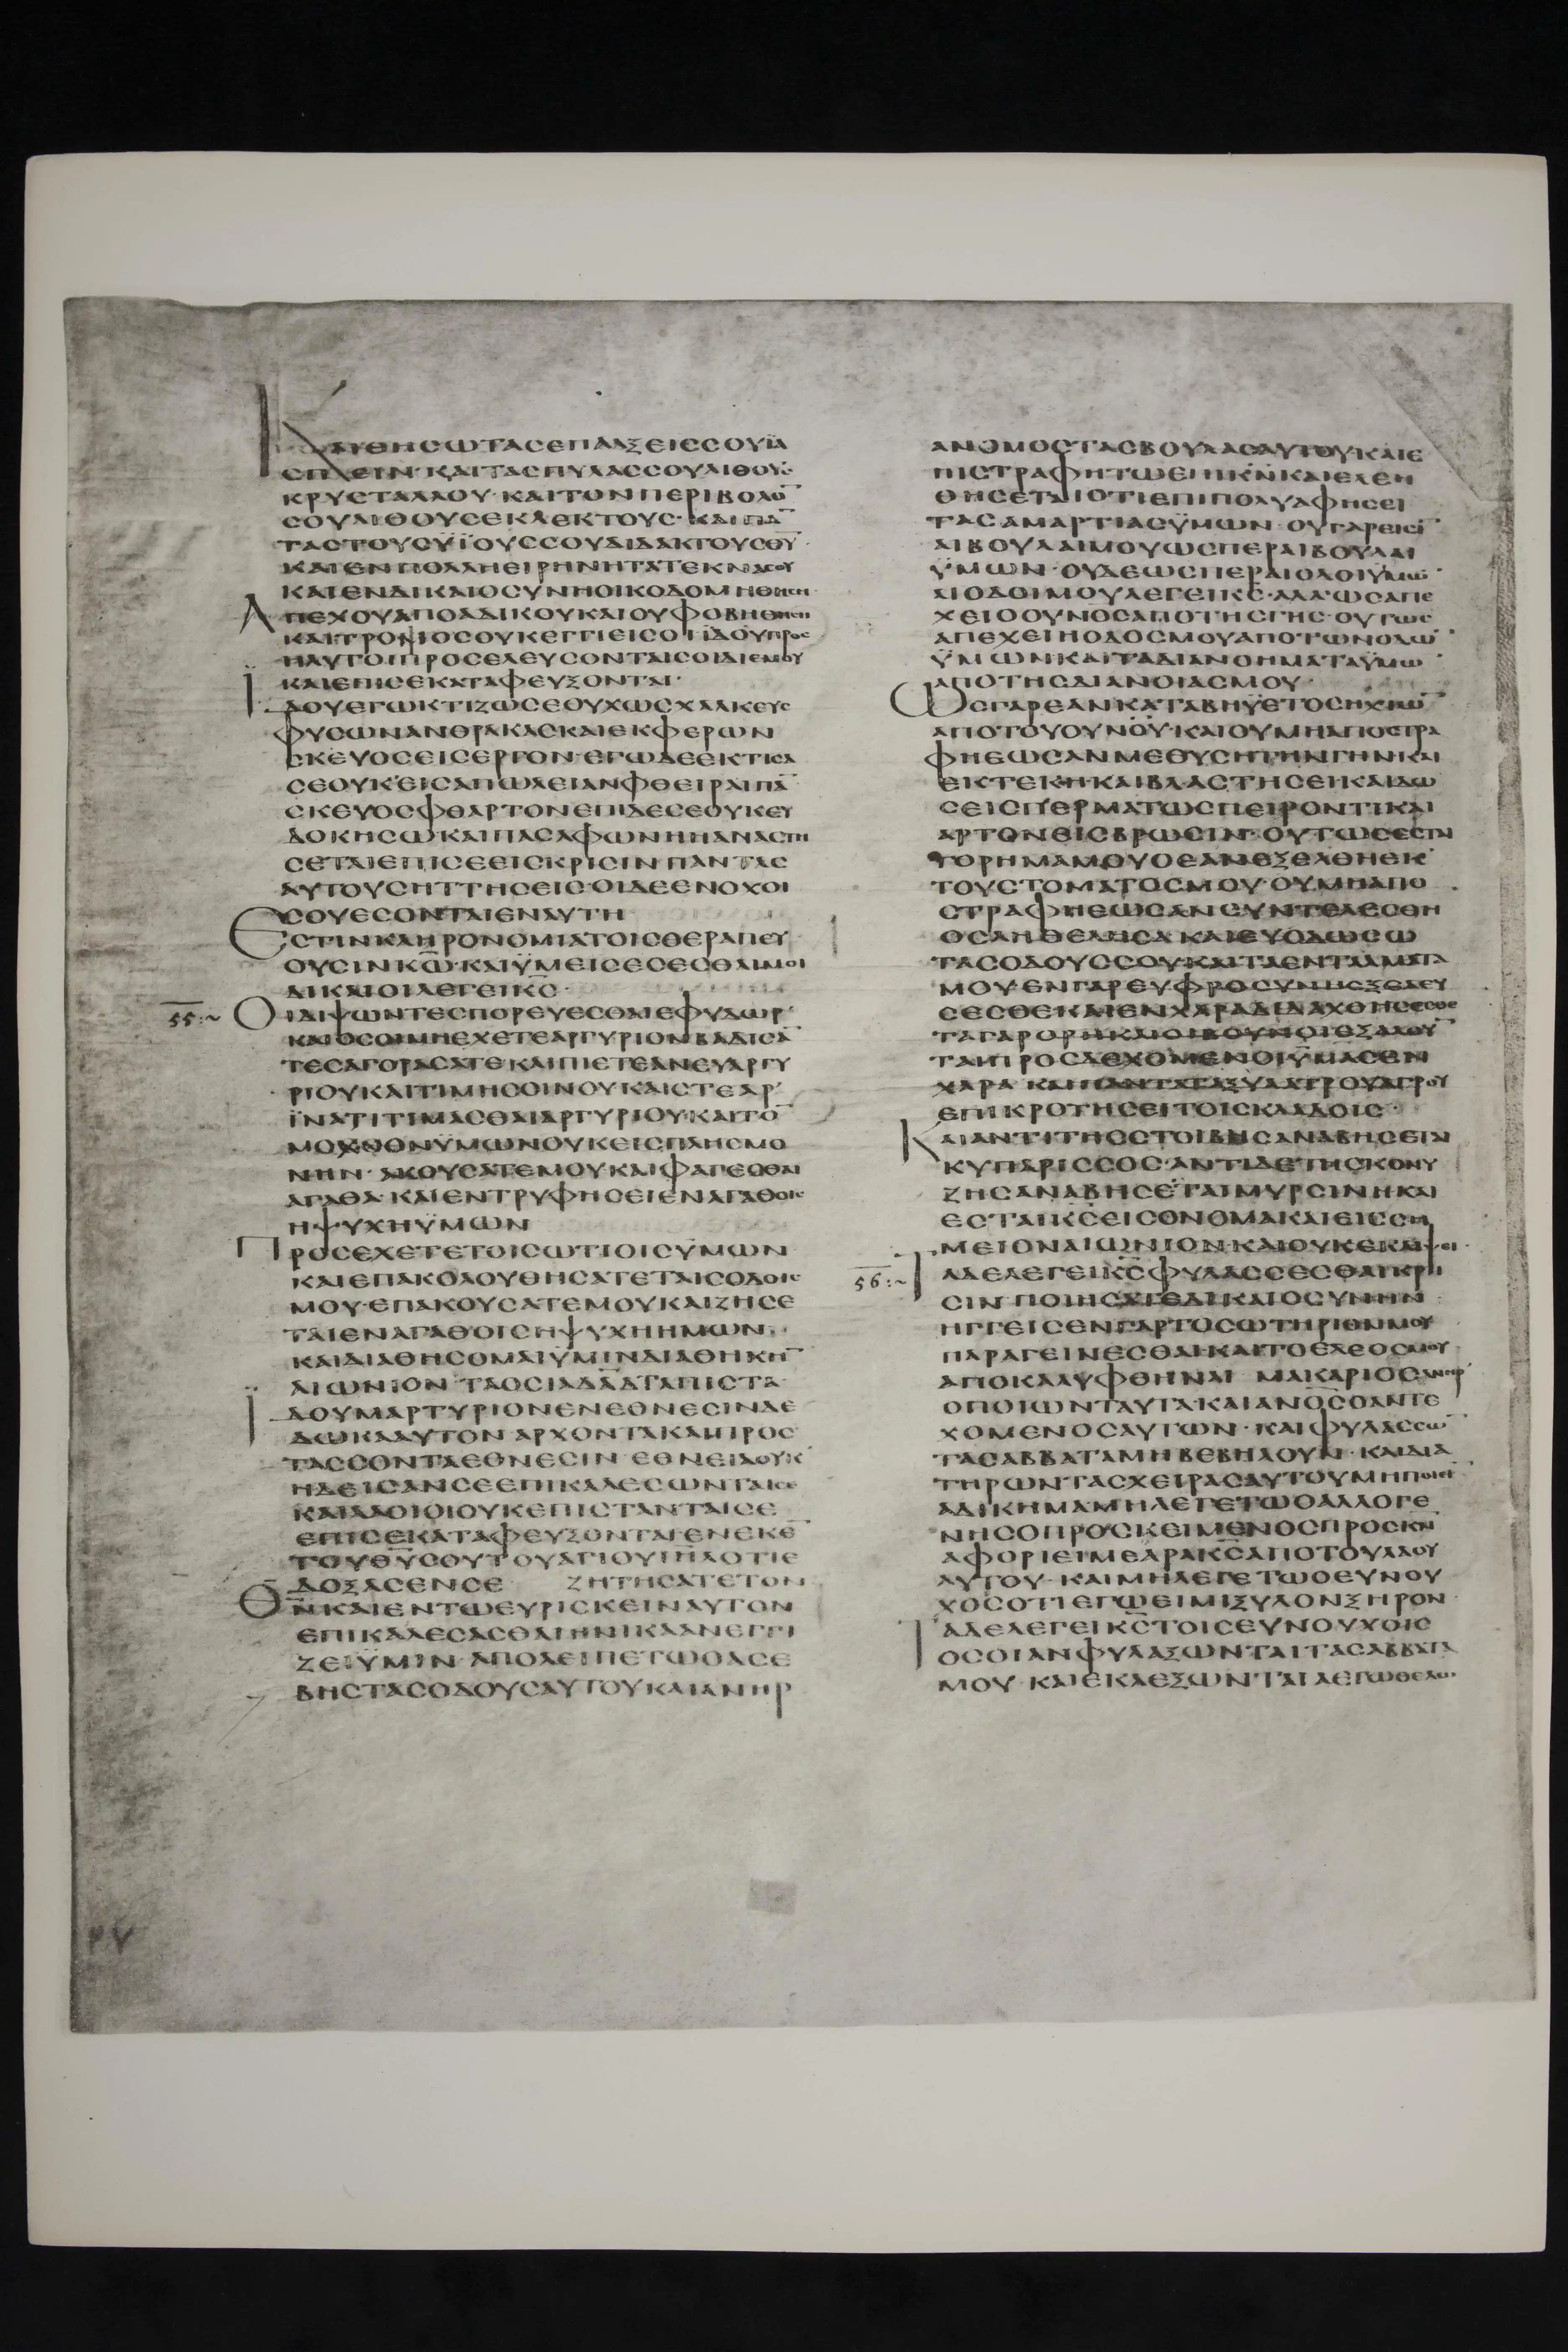 ΚΑΙΘΗϹΩΤΑϹΕΠΑΛΞΕΙϹϹΟΥΙΑ
ϹΠΕΙΝ·ΚΑΙΤΑϹΠΥΛΑϹϹΟΥΛΙΘΟΥϹ
ΚΡΥϹΤΑΛΛΟΥ·ΚΑΙΤΟΝΠΕΡΙΒΟΛΟ̅
ϹΟΥΛΙΘΟΥϹΕΚΛΕΚΤΟΥϹ·ΚΑΙΠΑ̅
ΤΑϹΤΟΥϹΫΪΟΥϹϹΟΥΔΙΔΑΚΤΟΥϹΘΥ·
ΚΑΙΕΝΠΟΛΛΗΕΙΡΗΝΗΤΑΤΕΚΝΑϹΟΥ
ΚΑΙΕΝΔΙΚΑΙΟϹΥΝΗΟΙΚΟΔΟΜΗΘΗϹΗ
ΑΠΕΧΟΥΑΠΟΑΔΙΚΟΥΚΑΙΟΥΦΟΒΗΘΗϹΗ
ΚΑΙΤΡΟΜΟϹΟΥΚΕΓΓΙΕΙϹΟΙΪΔΟΥΠΡΟϹ
ΗΛΥΤΟΙΠΡΟϹΕΛΕΥϹΟΝΤΑΙϹΟΙΔΙΕΜΟΥ
ΚΑΙΕΠΙϹΕΚΑΤΑΦΕΥΞΟΝΤΑΙ·
ΪΔΟΥΕΓΩΚΤΙΖΩϹΕΟΥΧΩϹΧΑΛΚΕΥϹ
ΦΥϹΩΝΑΝΘΡΑΚΑϹΚΑΙΕΚΦΕΡΩΝ
ϹΚΕΥΟϹΕΙϹΕΡΓΟΝ·ΕΓΩΔΕΕΚΤΙϹΑ
ϹΕΟΥΚΕΙϹΑΠΩΛΕΙΑΝΦΘΕΙΡΑΙΠΑ̅
ϹΚΕΥΟϹΦΘΑΡΤΟΝΕΠΙΔΕϹΕΟΥΚΕΥ
ΔΟΚΗϹΩΚΑΙΠΑϹΑΦΩΝΗΗΑΝΑϹΤΗ
ϹΕΤΑΙΕΠΙϹΕΕΙϹΚΡΙϹΙΝΠΑΝΤΑϹ
ΑΥΤΟΥϹΗΤΤΗϹΕΙϹ·ΟΙΔΕΕΝΟΧΟΙ
ϹΟΥΕϹΟΝΤΑΙΕΝΑΥΤΗ
ΕϹΤΙΝΚΛΗΡΟΝΟΜΙΑΤΟΙϹΘΕΡΑΠΕΥ
ΟΥϹΙΝΚΩ̅·ΚΑΙΫΜΕΙϹΕϹΕϹΘΑΙΜΟΙ
ΔΙΚΑΙΟΙΛΕΓΕΙΚϹ·
55:~ ΟΙΔΙΨΩΝΤΕϹΠΟΡΕΥΕϹΘΑΙΕΦΥΔΩΡ·
ΚΑΙΟϹΟΙΜΗΕΧΕΤΕΑΡΓΥΡΙΟΝΒΑΔΙϹΑ̅
ΤΕϹΑΓΟΡΑϹΑΤΕΚΑΙΠΙΕΤΕΑΝΕΥΑΡΓΥ
ΡΙΟΥΚΑΙΤΙΜΗϹΟΙΝΟΥΚΑΙϹΤΕΑΡ·
ΪΝΑΤΙΤΙΜΑϹΘΑΙΑΡΓΥΡΙΟΥ·ΚΑΙΤΟ̅
ΜΟΧΘΟΝΫΜΩΝΟΥΚΕΙϹΠΛΗϹΜΟ
ΝΗΝ·ΑΚΟΥϹΑΤΕΜΟΥΚΑΙΦΑΓΕϹΘΑΙ
ΑΓΑΘΑ·ΚΑΙΕΝΤΡΥΦΗϹΕΙΕΝΑΓΑΘΟΙϹ
ΗΨΥΧΗΫΜΩΝ
ΠΡΟϹΕΧΕΤΕΤΟΙϹΩΤΙΟΙϹΫΜΩΝ
ΚΑΙΕΠΑΚΟΛΟΥΘΗϹΑΤΕΤΑΙϹΟΔΟΙϹ
ΜΟΥ·ΕΠΑΚΟΥϹΑΤΕΜΟΥΚΑΙΖΗϹΕ
ΤΑΙΕΝΑΓΑΘΟΙϹΗΨΥΧΗΗΜΩΝ·
ΚΑΙΔΙΑΘΗϹΟΜΑΙΫΜΙΝΔΙΑΘΗΚΗ̅
ΑΙΩΝΙΟΝ·ΤΑΟϹΙΑΔΑ̅Δ̅ΤΑΠΙϹΤΑ·
ΪΔΟΥΜΑΡΤΥΡΙΟΝΕΝΕΘΝΕϹΙΝΔΕ
ΔΩΚΑΑΥΤΟΝΑΡΧΟΝΤΑΚΑΙΠΡΟϹ
ΤΑϹϹΟΝΤΑΕΘΝΕϹΙΝ·ΕΘΝΕΙΑΟΥΚ
ΗΔΕΙϹΑΝϹΕΕΠΙΚΑΛΕϹΩΝΤΑΙϹΕ
ΚΑΙΛΑΟΙΟΙΟΥΚΕΠΙϹΤΑΝΤΑΙϹΕ
ΕΠΙϹΕΚΑΤΑΦΕΥΞΟΝΤΑΙ·ΕΝΕΚΕ̅
ΤΟΥΘ̅Υ̅ϹΟΥΤΟΥΑΓΙΟΥΙ̅Η̅Λ̅ΟΤΙΕ
ΔΟΞΑϹΕΝϹΕ ΖΗΤΗϹΑΤΕΤΟΝ
Θ̅Ν̅ΚΑΙΕΝΤΩΕΥΡΙϹΚΕΙΝΑΥΤΟΝ
ΕΠΙΚΑΛΕϹΑϹΘΑΙΗΝΙΚΑΑΝΕΓΓΙ
ΖΕΙΫΜΙΝ·ΑΠΟΛΕΙΠΕΤΩΟΑϹΕ
ΒΗϹΤΑϹΟΔΟΥϹΑΥΤΟΥΚΑΙΑΝΗΡ
ΑΝΟΜΟϹΤΑϹΒΟΥΛΑϹΑΥΤΟΥ·ΚΑΙΕ
ΠΙϹΤΡΑΦΗΤΩΕΠΙΚ̅Ν̅ΚΑΙΕΛΕΗ
ΘΗϹΕΤΑΙΟΤΙΕΠΙΠΟΛΥΑΦΗϹΕΙ
ΤΑϹΑΜΑΡΤΙΑϹΫΜΩΝ·ΟΥΓΑΡΕΙϹΙ̅
ΑΙΒΟΥΛΑΙΜΟΥΩϹΠΕΡΑΙΒΟΥΛΑΙ
ΫΜΩΝ·ΟΥΔΕΩϹΠΕΡΑΙΟΔΟΙΫΜΩ̅
ΑΙΟΔΟΙΜΟΥΛΕΓΕΙΚϹ·ΑΛΛΩϹΑΠΕ
ΧΕΙΟΟΥΝΟϹΑΠΟΤΗϹΓΗϹ·ΟΥΤΩϹ
ΑΠΕΧΕΙΗΟΔΟϹΜΟΥΑΠΟΤΩΝΟΔΩ̅
ΫΜΩΝΚΑΙΤΑΔΙΑΝΟΗΜΑΤΑΫΜΩ̅
ΑΠΟΤΗϹΔΙΑΝΟΙΑϹΜΟΥ·
ΩϹΓΑΡΕΑΝΚΑΤΑΒΗΫΕΤΟϹΗΧΙΩ̅
ΑΠΟΤΟΥΟΥΝΟΥ·ΚΑΙΟΥΜΗΑΠΟϹΤΡΑ
ΦΗΕΩϹΑΝΜΕΘΥϹΗΤΗΝΓΗΝΚΑΙ
ΕΚΤΕΚΗ·ΚΑΙΒΛΑϹΤΗϹΕΙΚΑΙΔΩ
ϹΕΙϹΠΕΡΜΑΤΩϹΠΕΙΡΟΝΤΙΚΑΙ
ΑΡΤΟΝΕΙϹΒΡΩϹΙΝ·ΟΥΤΩϹΕϹΤΑΙ
ΤΟΡΗΜΑΜΟΥΟΕΑΝΕΞΕΛΘΗΕΚ
ΤΟΥϹΤΟΜΑΤΟϹΜΟΥ·ΟΥΜΗΑΠΟ
ϹΤΡΑΦΗΕΩϹΑΝϹΥΝΤΕΛΕϹΘΗ
ΟϹΑΗΘΕΛΗϹΑΚΑΙΕΥΟΔΩϹΩ
ΤΑϹΟΔΟΥϹϹΟΥ·ΚΑΙΤΑΕΝΤΑΛΜΑΤΑ
ΜΟΥ·ΕΝΓΑΡΕΥΦΡΟϹΥΝΗΕΞΕΛΕΥ
ϹΕϹΘΕΚΑΙΕΝΧΑΡΑΔΙΔΑΧΘΗϹΕϹΘΕ
ΤΑΓΑΡΟΡΗΚΑΙΟΙΒΟΥΝΟΙΕΞΑΛΟΥ̅
ΤΑΙΠΡΟϹΔΕΧΟΜΕΝΟΙΫΜΑϹΕΝ
ΧΑΡΑ·ΚΑΙΠΑΝΤΑΤΑΞΥΛΑΤΟΥΑΓΡΟΥ
ΕΠΙΚΡΟΤΗϹΕΙΤΟΙϹΚΛΑΔΟΙϹ·
ΚΑΙΑΝΤΙΤΗϹϹΤΟΙΒΗϹΑΝΑΒΗϹΕΤΑΙ
ΚΥΠΑΡΙϹϹΟϹ·ΑΝΤΙΔΕΤΗϹΚΟΝΥ
ΖΗϹΑΝΑΒΗϹΕΤΑΙΜΥΡϹΙΝΗΚΑΙ
ΕϹΤΑΙΚϹΕΙϹΟΝΟΜΑΚΑΙΕΙϹϹΗ
ΜΕΙΟΝΑΙΩΝΙΟΝ·ΚΑΙΟΥΚΕΚΛΙΨΕΙ·
56:~ ΤΑΔΕΛΕΓΕΙΚ̅Ϲ̅ΦΥΛΑϹϹΕϹΘΑΙΚΡΙ
ϹΙΝ·ΠΟΙΗϹΑΤΕΔΙΚΑΙΟϹΥΝΗΝ·
ΗΓΓΕΙϹΕΝΓΑΡΤΟϹΩΤΗΡΙΟΝΜΟΥ
ΠΑΡΑΓΕΙΝΕϹΘΑΙ·ΚΑΙΤΟΕΛΕΟϹΜΟΥ
ΑΠΟΚΑΛΥΦΘΗΝΑΙ ΜΑΚΑΡΙΟϹΑΝΗΡ
ΟΠΟΙΩΝΤΑΥΤΑ·ΚΑΙΑΝΟ̅Ϲ̅ΟΑΝΤΕ
ΧΟΜΕΝΟϹΑΥΤΩΝ·ΚΑΙΦΥΛΑϹϹΩ̅
ΤΑϹΑΒΒΑΤΑΜΗΒΕΒΗΛΟΥΝ·ΚΑΙΔΙΑ
ΤΗΡΩΝΤΑϹΧΕΙΡΑϹΑΥΤΟΥΜΗΠΟΙΕΙ̅
ΑΔΙΚΗΜΑΜΗΛΕΓΕΤΩΟΑΛΛΟΓΕ
ΝΗϹΟΠΡΟϹΚΕΙΜΕΝΟϹΠΡΟϹΚ̅Ν̅
ΑΦΟΡΙΕΙΜΕΑΡΑΚ̅Ϲ̅ΑΠΟΤΟΥΛΑΟΥ
ΑΥΤΟΥ·ΚΑΙΜΗΛΕΓΕΤΩΟΕΥΝΟΥ
ΧΟϹΟΤΙΕΓΩΕΙΜΙΞΥΛΟΝΞΗΡΟΝ
ΤΑΔΕΛΕΓΕΙΚ̅Ϲ̅ΤΟΙϹΕΥΝΟΥΧΟΙϹ
ΟϹΟΙΑΝΦΥΛΑΞΩΝΤΑΙΤΑϹΑΒΒΑΤΑ
ΜΟΥ·ΚΑΙΕΚΛΕΞΩΝΤΑΙΑΕΓΩΘΕΛΩ·